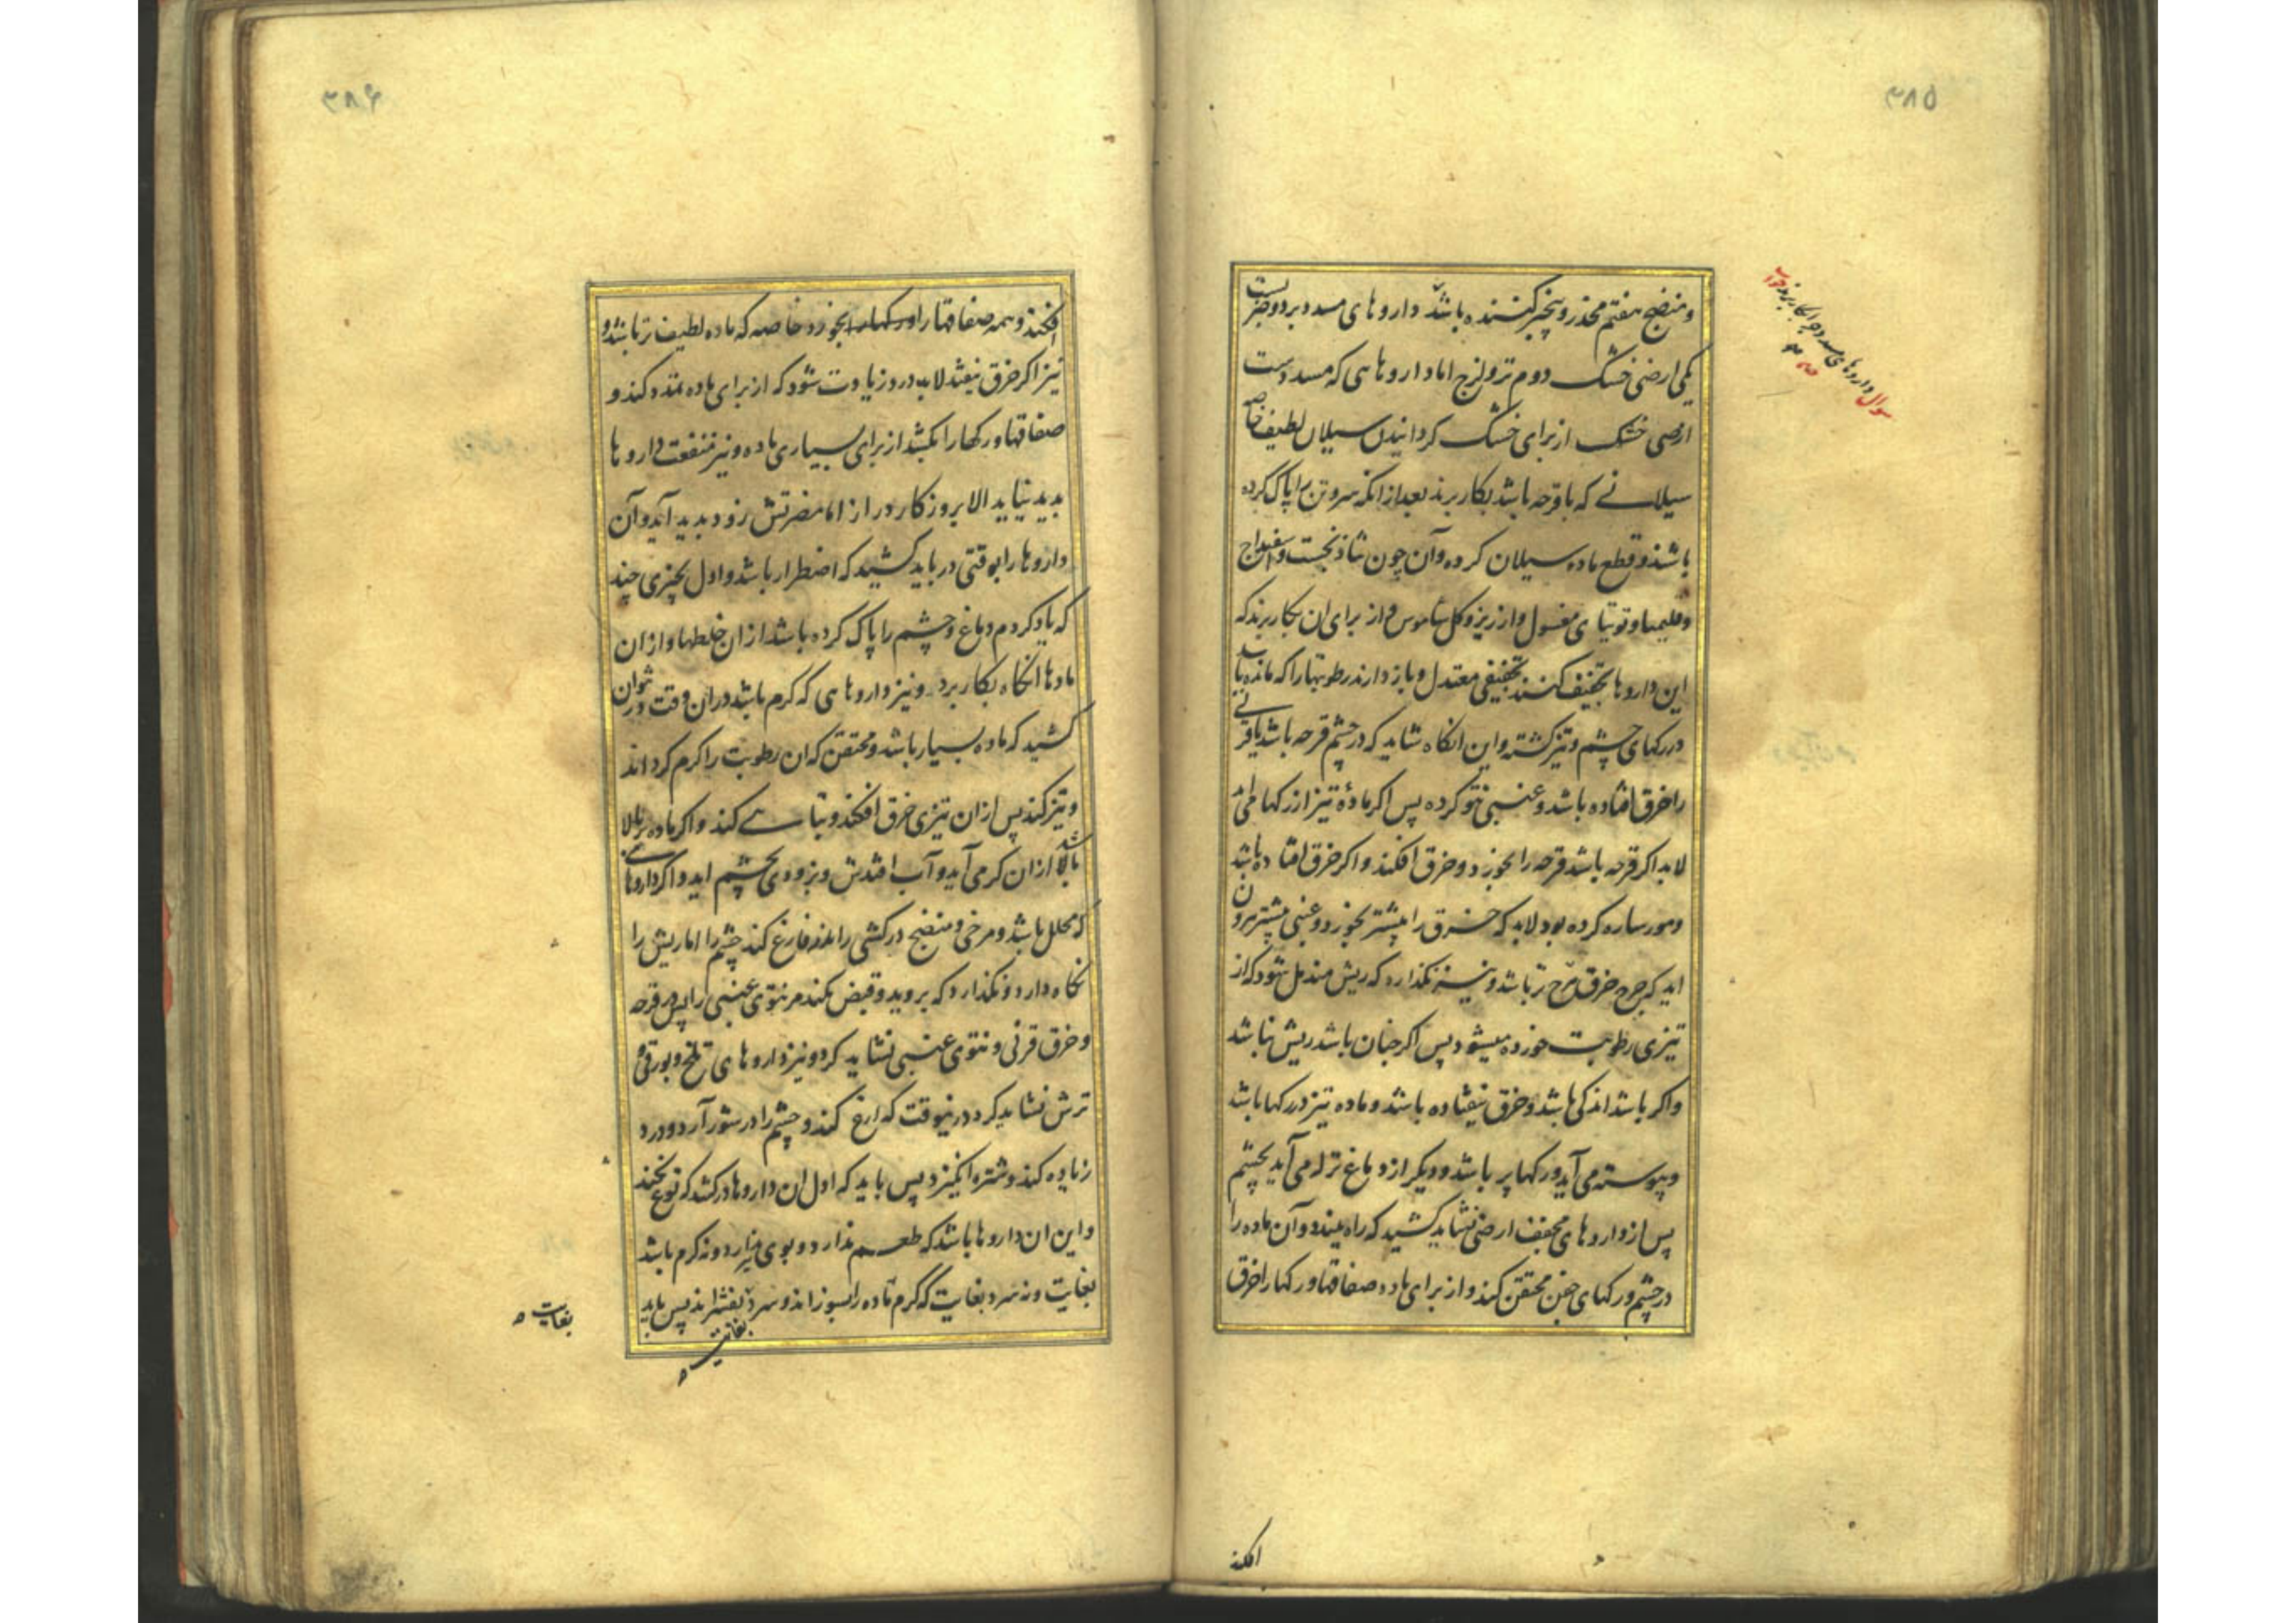 ۳۸۵
و منضج هفتم مخدر و تخیر کننده باشد داروهای مسدد بر دو ضربست
یکی ارضی خشک دوم تر و لزج اما داروهایی که مسددست
ارضی خشک از برای خشک کردانیدن سیلان لطیف خاصه
سیلانی که با قرحه باشد بکار برند بعد از انکه سر و تن را پاک کرده
باشند و قطع ماده سیلان کرده و آن چون شاذنجست و اسفیداج
و قلیمیا و توتیای مغسول و ارزیز و کل شاموس و از برای ان بکار برند که
این داروها تجفیف کنند تجفیفی معتدل و باز دارند رطوبتها را که مانده باشد
در رکهای چشم و تیز کشته و این انکاه شاید که در چشم قرحه باشد یا قرنی
را خرق افتاده باشد و عنبی نتو کرده پس اکر مادهٔ تیز از رکها می آید
لابد اکر قرحه باشد قرحه را بخورد و خرق افکند و اکر خرق افتاده باشد
و مورساره کرده بود لابد که خرق را بیشتر بخورد و عنبی بیشتر برون
اید که جرح خرق تر باشد و نیز نکذارد که ریش مندمل شود که از
تیزی رطوبت خورده میشود پس اکر چنان باشد ریش نباشد
و اکر باشد اندکی باشد و خرق نیفتاده باشد و ماده تیز در رکها باشد
و پیوسته می آید و رکها پر باشد و دیکر از دماغ نزله می آید بچشم
پس از داروهای مجفف ارضی نشاید کشید که راه ببندد و آن ماده را
در چشم و رکهای جفن محتقن کند و از برای ماده صفاقها و رکها را خرق
افکند
سوال داروهای مسدد چرا بکار برند جواب
۳۸۶
افکند و همه صفاقها را و رکها را بخورد خاصه که ماده لطیف تر باشد و
نیز اکر خرق نیفتد لابد درد زیادت شود که از برای ماده تمدد کند و
صفاقها و رکها را بکشد از برای بسیاری ماده و نیز منفعت داروها
بدید نیاید الا بروزکار دراز اما مضرتش زود بدید آید و آن
داروها را بوقتی در باید کشید که اضطرار باشد و اول بچیزی چند
که یاد کردم دماغ و چشم را پاک کرده باشد از ان خلطها و از ان
مادها انکاه بکار برد و نیز داروهایی که کرم باشد در ان وقت در نتوان
کشید که ماده بسیار باشد و محتقن که ان رطوبت را کرم کرداند
و تیز کند پس از ان تیزی خرق افکند و تباهی کند و اکر ماده بر بالا
باشد بالا از ان کرمی آید و آب افتدش و بزودی بچشم اید و اکر داروهایی
که محلل باشد و مرخی و منضج درکشی را ماده فارغ کند چشم را اما ریش را
نکاه دارد و نکذارد که بروید و قبض نکند مر نتوی عنبی را پس در قرحه
و خرق قرنی و نتوی عنبی نشاید کرد و نیز داروهای تلخ و بورقی و
ترش نشاید کرد درین وقت که لدغ کند و چشم را در شور آرد و درد
زیاده کند و شتره انکیزد پس باید که اول ان داروها درکشد که لدغ نکند
و این ان داروها باشد که طعم ندارد و بوی ندارد و نه کرم باشد
بغایت و نه سرد بغایت که کرم ماده را بسوزاند و سرد بفشراند پس باید
بغایت
بغایت